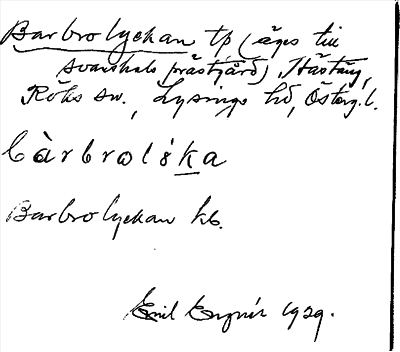 Barbrolyckan tp (äges till
Svanshals prästgård), Hästäng,
Röks sn., Lysings hd, Österg. l.
bàrbrolyka
Barbrolyckan kb.
Emil 1929.